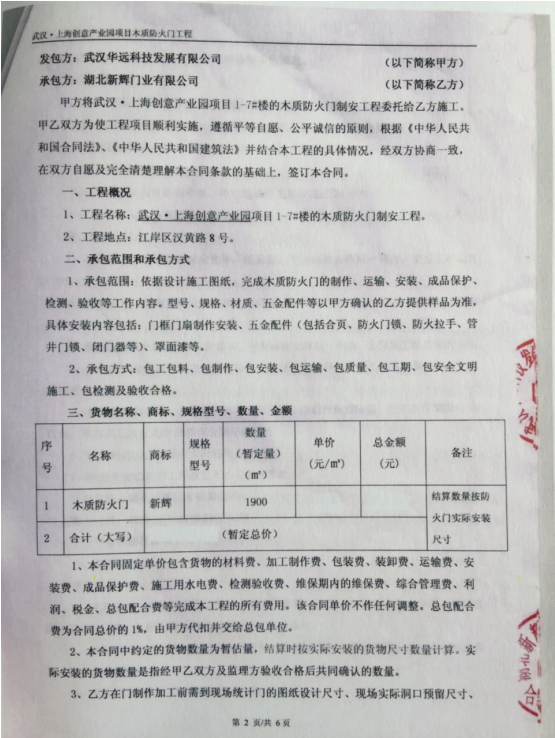 武汉·上海创意产业园项目木质防火门工程
发包方：武汉华远科技发展有限公司 （以下简称甲方）
承包方：湖北新辉门业有限公司 （以下简称乙方）
甲方将武汉·上海创意产业园项目 1-7#楼的木质防火门制安工程委托给乙方施工。
甲乙双方为使工程项目顺利实施，遵循平等自愿、公平诚信的原则，根据《中华人民共
和国合同法》、《中华人民共和国建筑法》并结合本工程的具体情况，经双方协商一致，
在双方自愿及完全清楚理解本合同条款的基础上，签订本合同。
一、工程概况
1、工程名称：武汉·上海创意产业园项目 1-7#楼的木质防火门制安工程。
2、工程地点：江岸区汉黄路 8 号。
二、承包范围和承包方式
1、承包范围：依据设计施工图纸，完成木质防火门的制作、运输、安装、成品保护、
检测、验收等工作内容。型号、规格、材质、五金配件等以甲方确认的乙方提供样品为准，
具体安装内容包括：门框门扇制作安装、五金配件（包括合页、防火门锁、防火拉手、管
井门锁、闭门器等）、罩面漆等。
2、承包方式：包工包料、包制作、包安装、包运输、包质量、包工期、包安全文明
施工、包检测及验收合格。
三、货物名称、商标、规格型号、数量、金额
序号 名称 商标 规格型号 数量（暂定量）（㎡） 单价（元/㎡） 总金额（元） 备注
1 木质防火门 新辉 1900 结算数量按防火门实际安装尺寸
2 合计（大写） （暂定总价）
1、本合同固定单价包含货物的材料费、加工制作费、包装费、装卸费、运输费、安
装费、成品保护费、施工用水电费、检测验收费、维保期内的维保费、综合管理费、利
润、税金、总包配合费等完成本工程的所有费用。该合同单价不作任何调整。总包配合
费为合同总价的 1%，由甲方代扣并交给总包单位。
2、本合同中约定的货物数量为暂估量，结算时按实际安装的货物尺寸数量计算。实
际安装的货物数量是指经甲乙双方及监理方验收合格后共同确认的数量。
3、乙方在门制作加工前需到现场统计门的图纸设计尺寸、现场实际洞口预留尺寸、
第 2 页/共 6 页